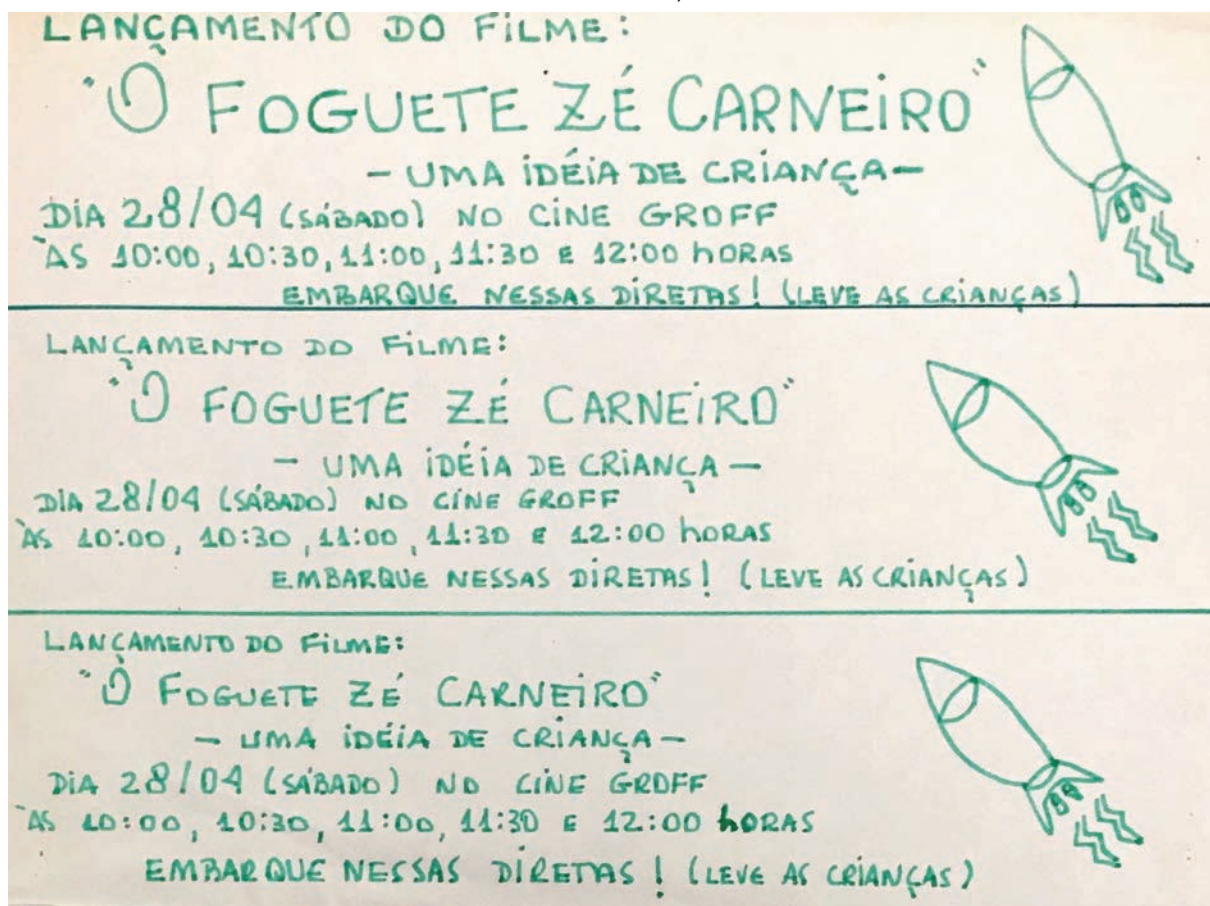 LANÇAMENTO DO FILME:
"O FOGUETE ZÉ CARNEIRO"
- UMA IDÉIA DE CRIANÇA -
DIA 28/04 (SÁBADO) NO CINE GROFF
ÀS 10:00, 10:30, 11:00, 11:30 E 12:00 HORAS
EMBARQUE NESSAS DIRETAS! (LEVE AS CRIANÇAS)
LANÇAMENTO DO FILME:
"O FOGUETE ZÉ CARNEIRO"
- UMA IDÉIA DE CRIANÇA -
DIA 28/04 (SÁBADO) NO CINE GROFF
ÀS 10:00, 10:30, 11:00, 11:30 E 12:00 HORAS
EMBARQUE NESSAS DIRETAS! (LEVE AS CRIANÇAS)
LANÇAMENTO DO FILME:
"O FOGUETE ZÉ CARNEIRO"
- UMA IDÉIA DE CRIANÇA -
DIA 28/04 (SÁBADO) NO CINE GROFF
ÀS 10:00, 10:30, 11:00, 11:30 E 12:00 HORAS
EMBARQUE NESSAS DIRETAS! (LEVE AS CRIANÇAS)